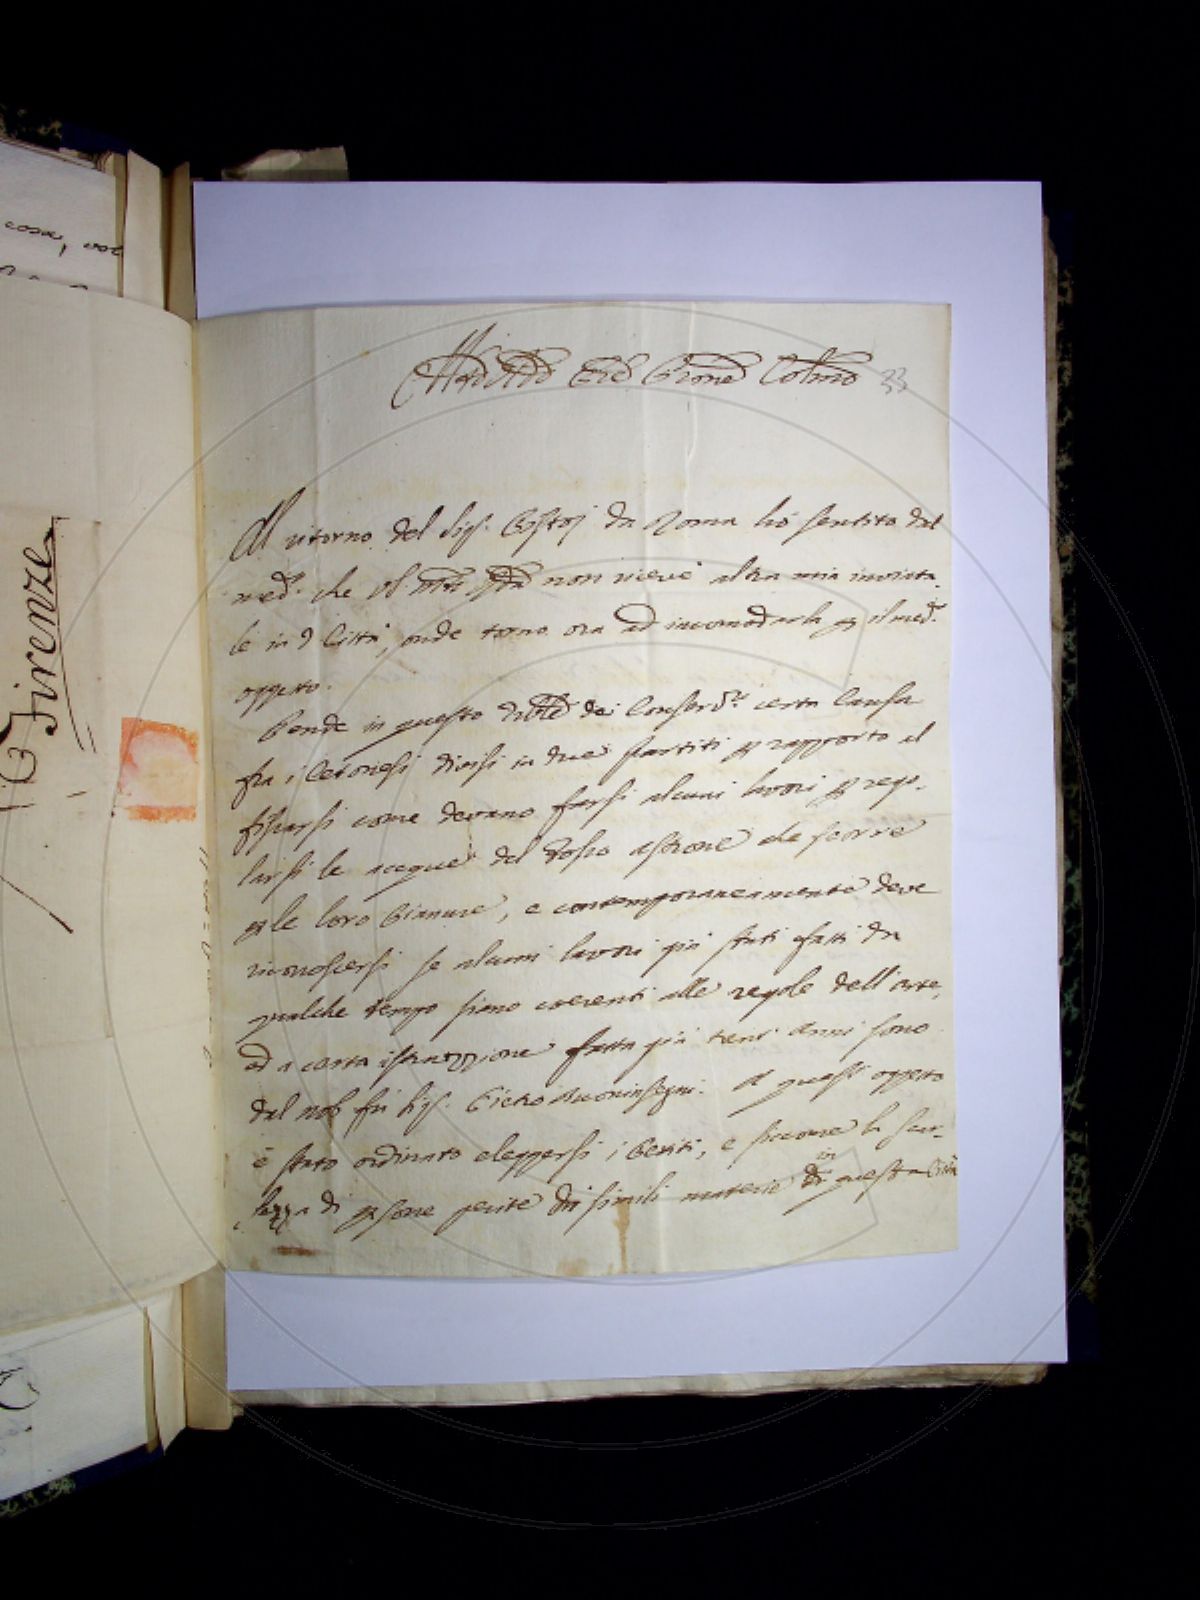 cosa, vol
Firenze
Illmo Sig.e Sig.e Prone Colmo 33
Al ritorno del Sig. Bostoj da Roma hò sentito dal
med. che VS Illma non riceve altra mia inviata-
le in d Città, onde torno ora ad incomodarla p il med.
oggetto.
Pende in questo dei Conserv.ri certa Causa
fra i Cetonesi divisi in due partiti p rapporto al
fissarsi come devano farsi alcuni lavori p rego-
larsi le acque del Fosso Astrone che scorre
p le loro Pianure, e contemporaneamente deve
riconoscersi se alcuni lavori già stati fatti da
qualche tempo siano coerenti alle regole dell'arte,
ed a certa istruzzione fatta già trent' anni sono
dal nob fù Sig. Pietro Buoninsegni. A quest' oggetto
è stato ordinato eleggersi i Periti, e siccome la scar-
sezza di psone perite di simili materie in questa Città